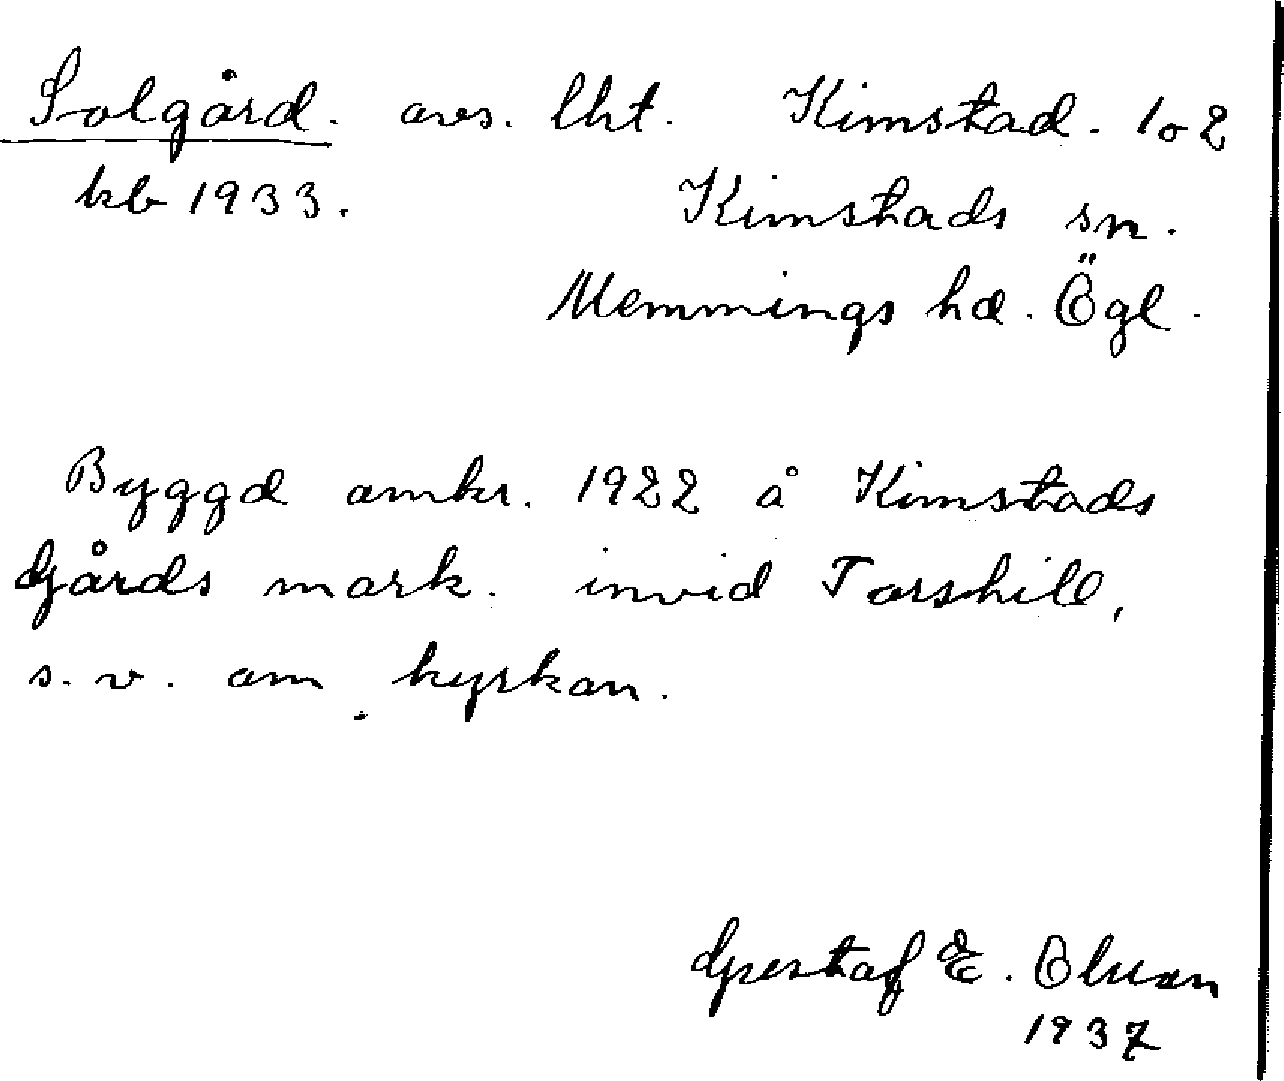 Solgård. avs. lht. Kimstad. 1o2
kb 1933. Kimstads sn.
Memmings hd. Ögl.
Byggd omkr. 1922 å Kimstads
Gårds mark. invid Torshill,
s.v. om kyrkan.
Gustaf E. Olsson
1937